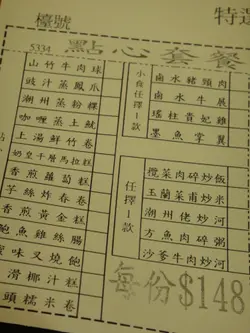 檯號
特選
5334
點心套餐
山竹牛肉球
豉汁蒸鳳爪
潮州蒸粉粿
咖喱蒸土魷
上湯鮮竹卷
奶皇千層馬拉糕
香煎蘿蔔糕
芋絲炸春卷
香煎黃金糕
鮑魚雞絲腸
蜜味叉燒飽
滑椰汁糕
頭糯米卷
小食任擇1款
鹵水豬頭肉
鹵水牛𦟌
瑤柱貴妃雞
墨魚掌翼
任擇1款
欖菜肉碎炒飯
玉蘭菜甫炒米
潮州佬炒河
方魚肉碎粥
沙爹牛肉炒河
每份$148